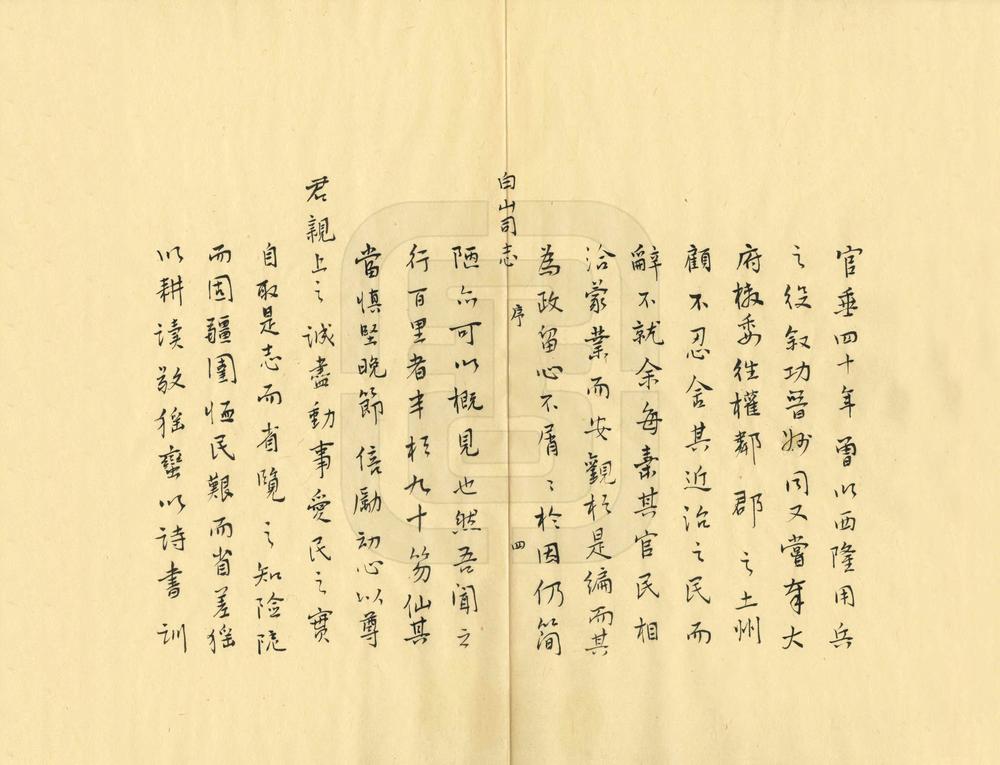 官垂四十年曽以西隆用兵
之役叙功晉州同又嘗奉大
府檄委往權鄰郡之土州
顧不忍舍其近治之民而
辭不就余每素其官民相
洽家業而安觀於是編而其
為政留心不屑〻於因仍簡
白山司志 序 四
陋亦可以概見也然吾聞之
行百里者半於九十笏仙其
當慎堅晚節倍勵初心以尊
君親上之誠盡動事愛民之實
自取是志而省覽之知險阨
而固疆圉恤民艱而省差徭
以耕讀敎猺蠻以詩書訓